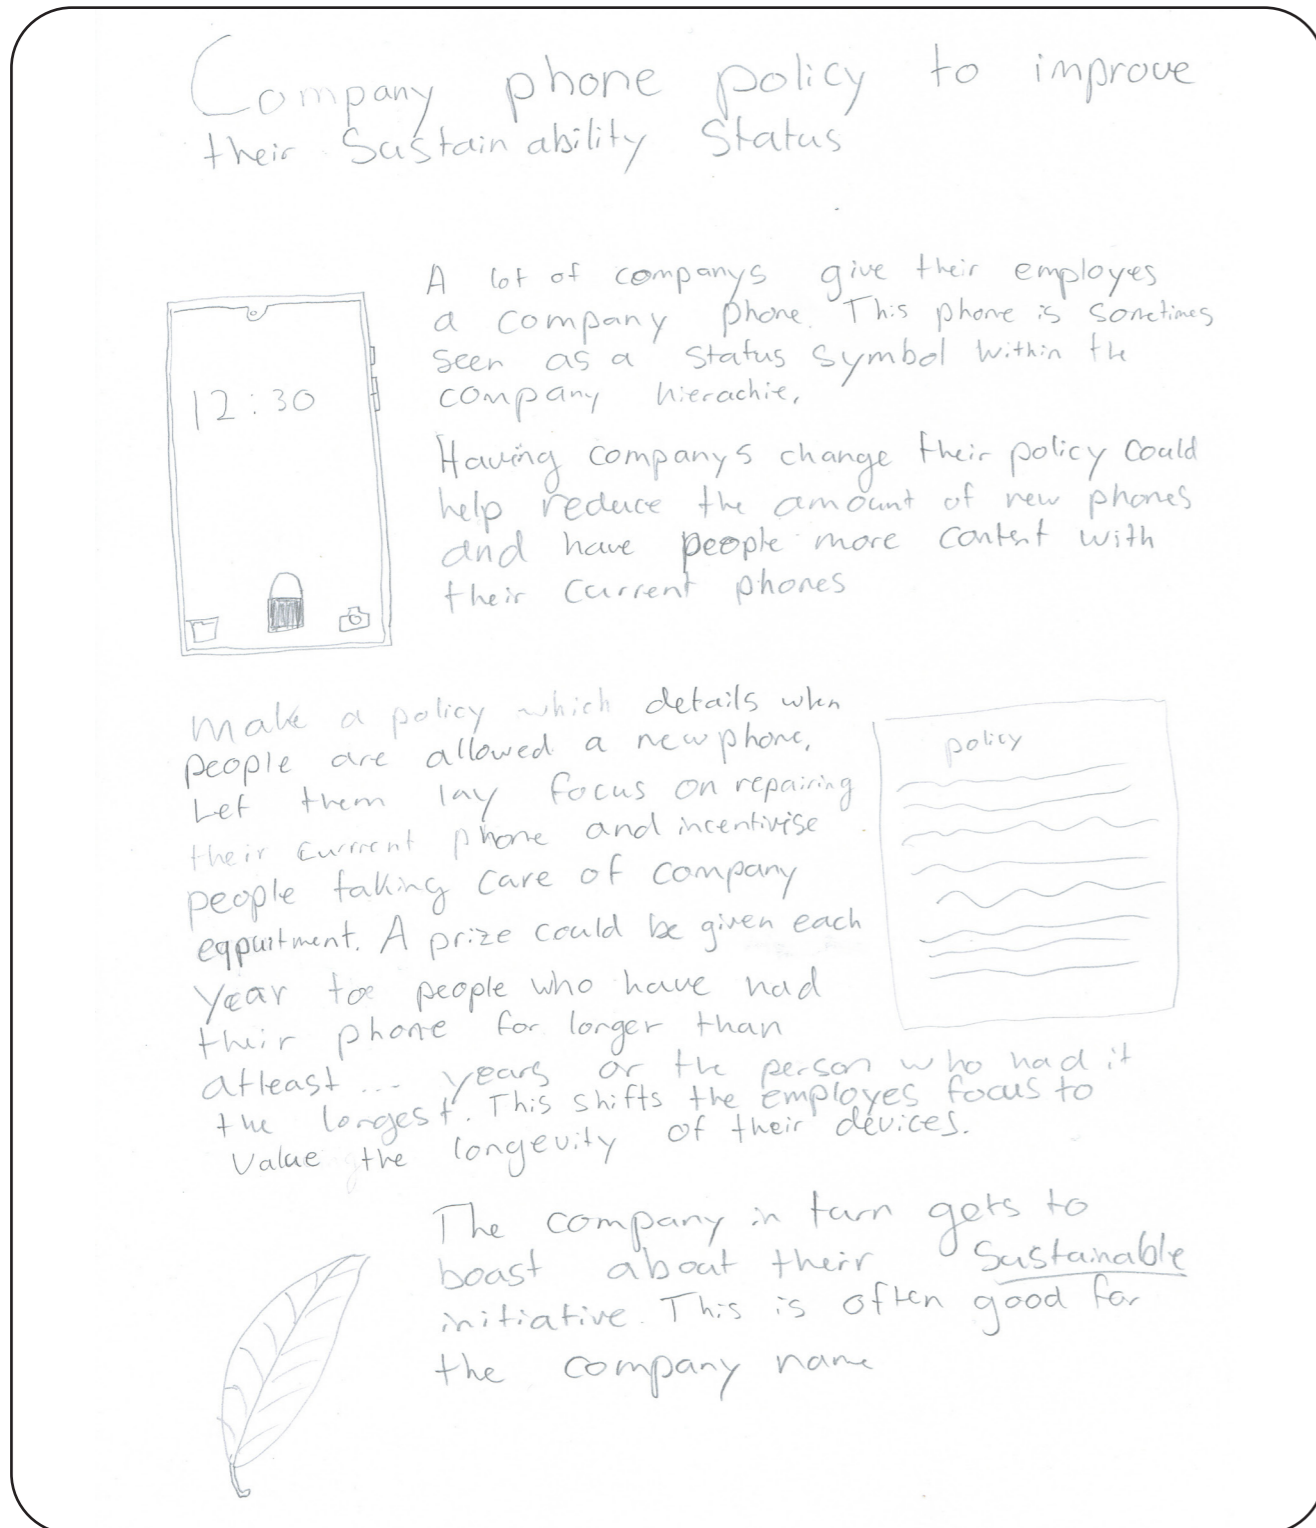 Company phone policy to improve
their Sustainability Status
A lot of companys give their employes
a company phone. This phone is sometimes
seen as a status symbol within the
company hierachie,
12:30
Having companys change their policy could
help reduce the amount of new phones
and have people more content with
their current phones
make a policy which details when
people are allowed a new phone,
Let them lay focus on repairing
their current phone and incentivise
people taking care of company
eqpuitment. A prize could be given each
year to people who have had
their phone for longer than
atleast ... years or the person who had it
the longest. This shifts the employes focus to
Value the longevity of their devices.
policy
The company in turn gets to
boast about their Sustainable
initiative. This is often good for
the company name